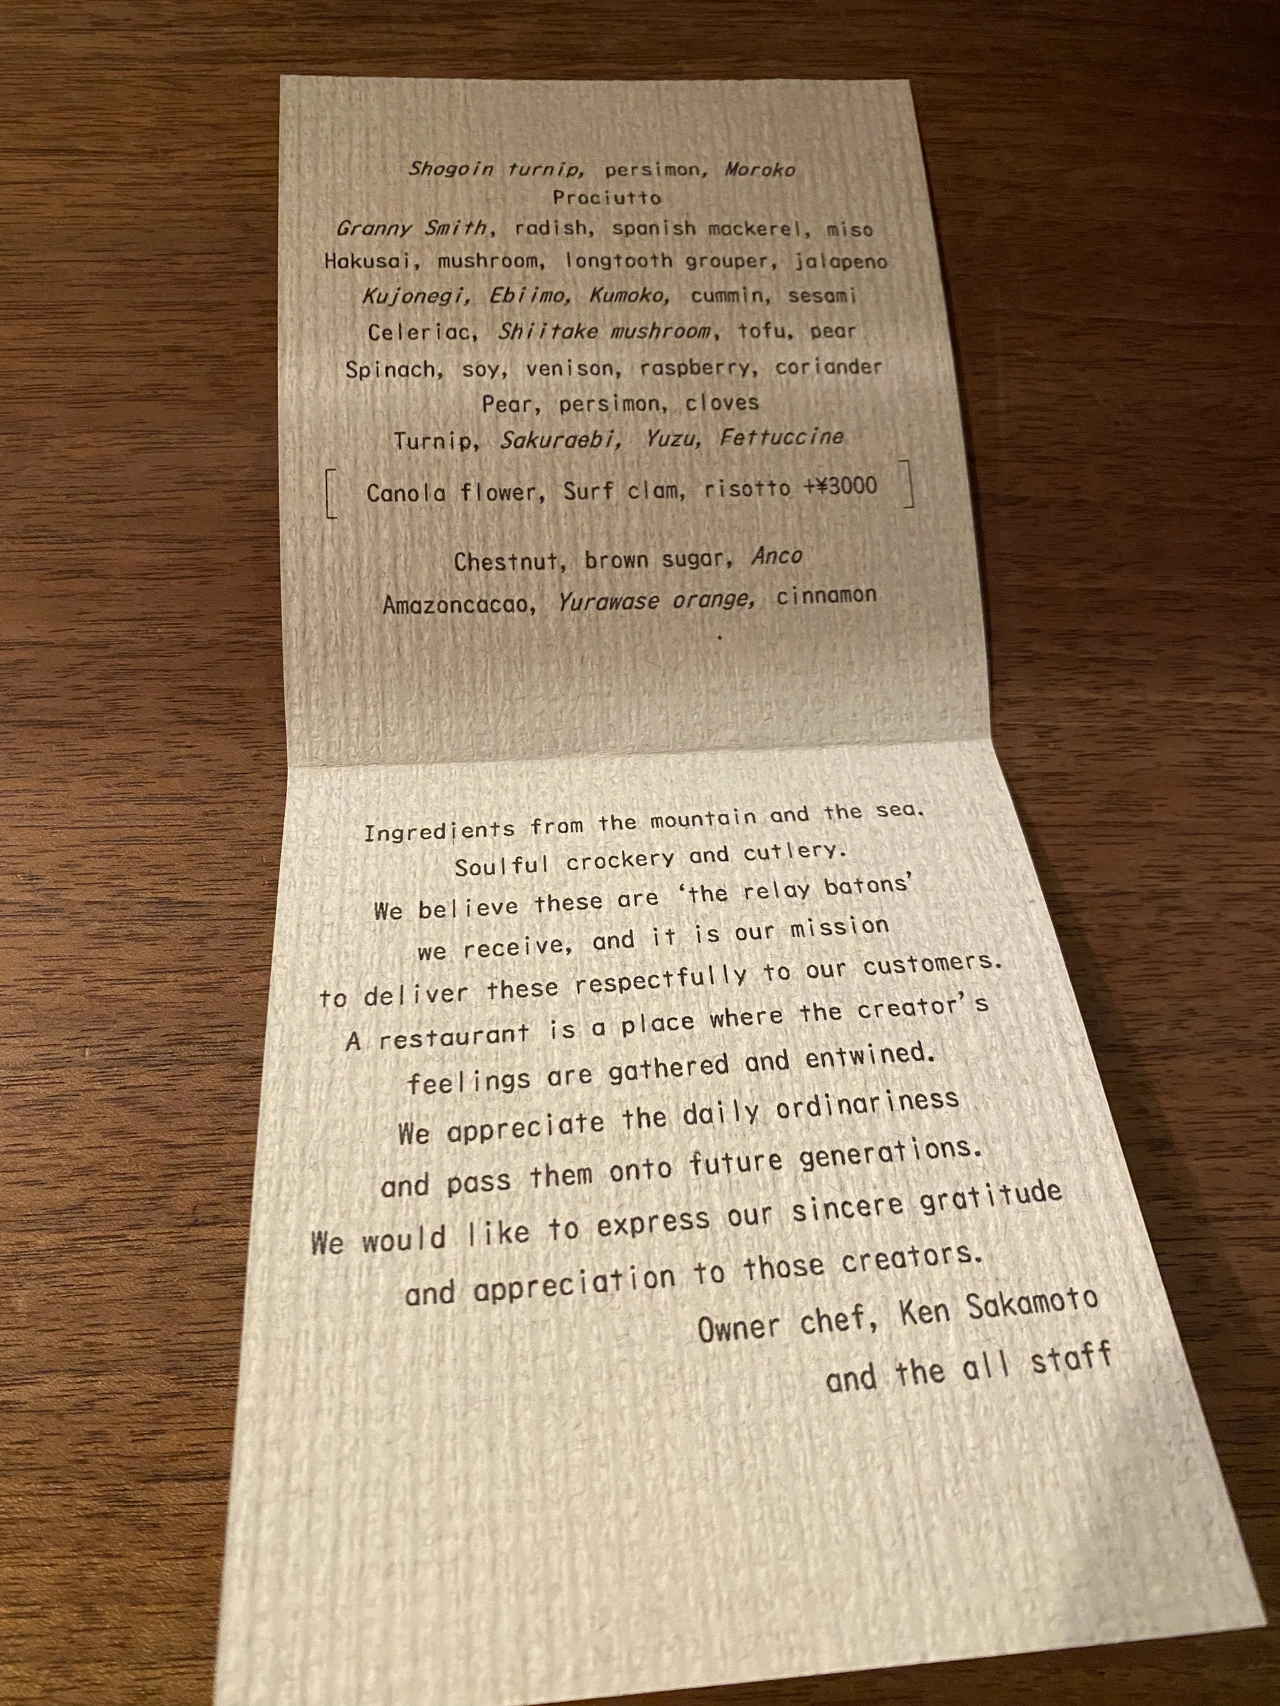 Shogoin turnip, persimon, Moroko
Prociutto
Granny Smith, radish, spanish mackerel, miso
Hakusai, mushroom, longtooth grouper, jalapeno
Kujonegi, Ebiimo, Kumoko, cummin, sesami
Celeriac, Shiitake mushroom, tofu, pear
Spinach, soy, venison, raspberry, coriander
Pear, persimon, cloves
Turnip, Sakuraebi, Yuzu, Fettuccine
[ Canola flower, Surf clam, risotto +¥3000 ]
Chestnut, brown sugar, Anco
Amazoncacao, Yurawase orange, cinnamon
Ingredients from the mountain and the sea.
Soulful crockery and cutlery.
We believe these are ‘the relay batons’
we receive, and it is our mission
to deliver these respectfully to our customers.
A restaurant is a place where the creator’s
feelings are gathered and entwined.
We appreciate the daily ordinariness
and pass them onto future generations.
We would like to express our sincere gratitude
and appreciation to those creators.
Owner chef, Ken Sakamoto
and the all staff